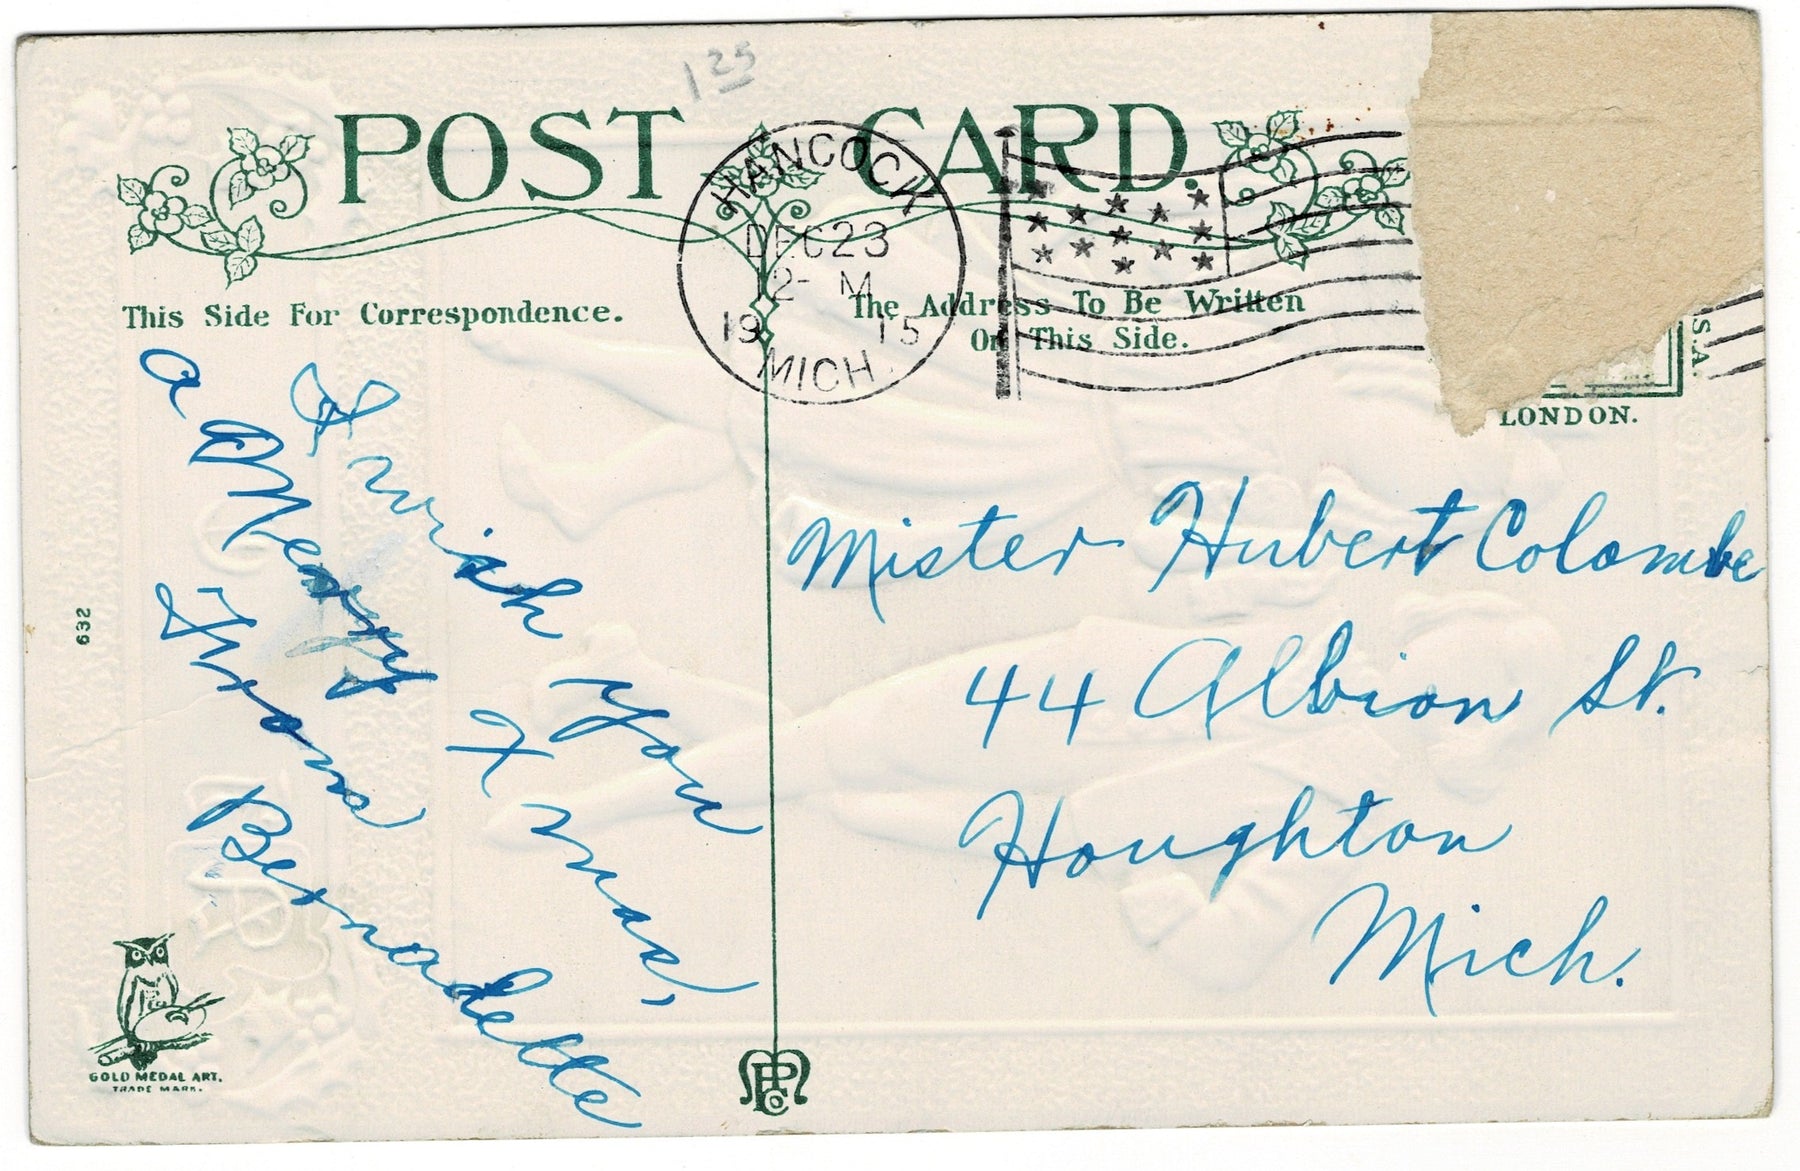 1 25
POST CARD.
HANCOCK
DEC 23
12- M
19 15
MICH.
This Side For Correspondence.
The Address To Be Written
On This Side.
S.A.
LONDON.
I wish you
a Merry Xmas,
From
Bernadette
Mister Hubert Colombe
44 Albion St.
Houghton
Mich.
632
GOLD MEDAL ART.
TRADE MARK.